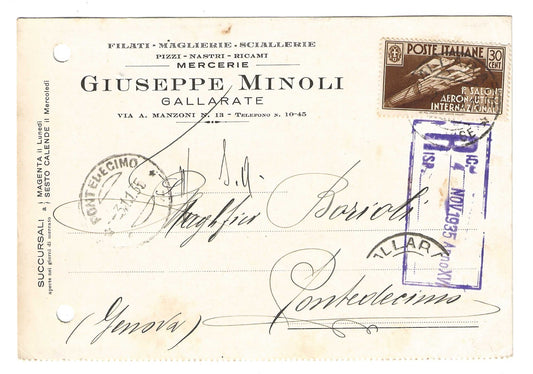 FILATI - MAGLIERIE - SCIALLERIE
PIZZI - NASTRI - RICAMI
MERCERIE
GIUSEPPE MINOLI
GALLARATE
VIA A. MANZONI N. 13 - TELEFONO N. 10-45
POSTE ITALIANE 30
CENT
Iº SALONE
AERONAUTICO
INTERNAZIONALE
R IC.
R ISP.
4 NOV. 1935 ANNO XIV
PONTEDECIMO
GALLARATE
SUCCURSALI a MAGENTA il Lunedì
a SESTO CALENDE il Mercoledì
aperte nei giorni di mercato
Borioli
Pontedecimo
(Genova)